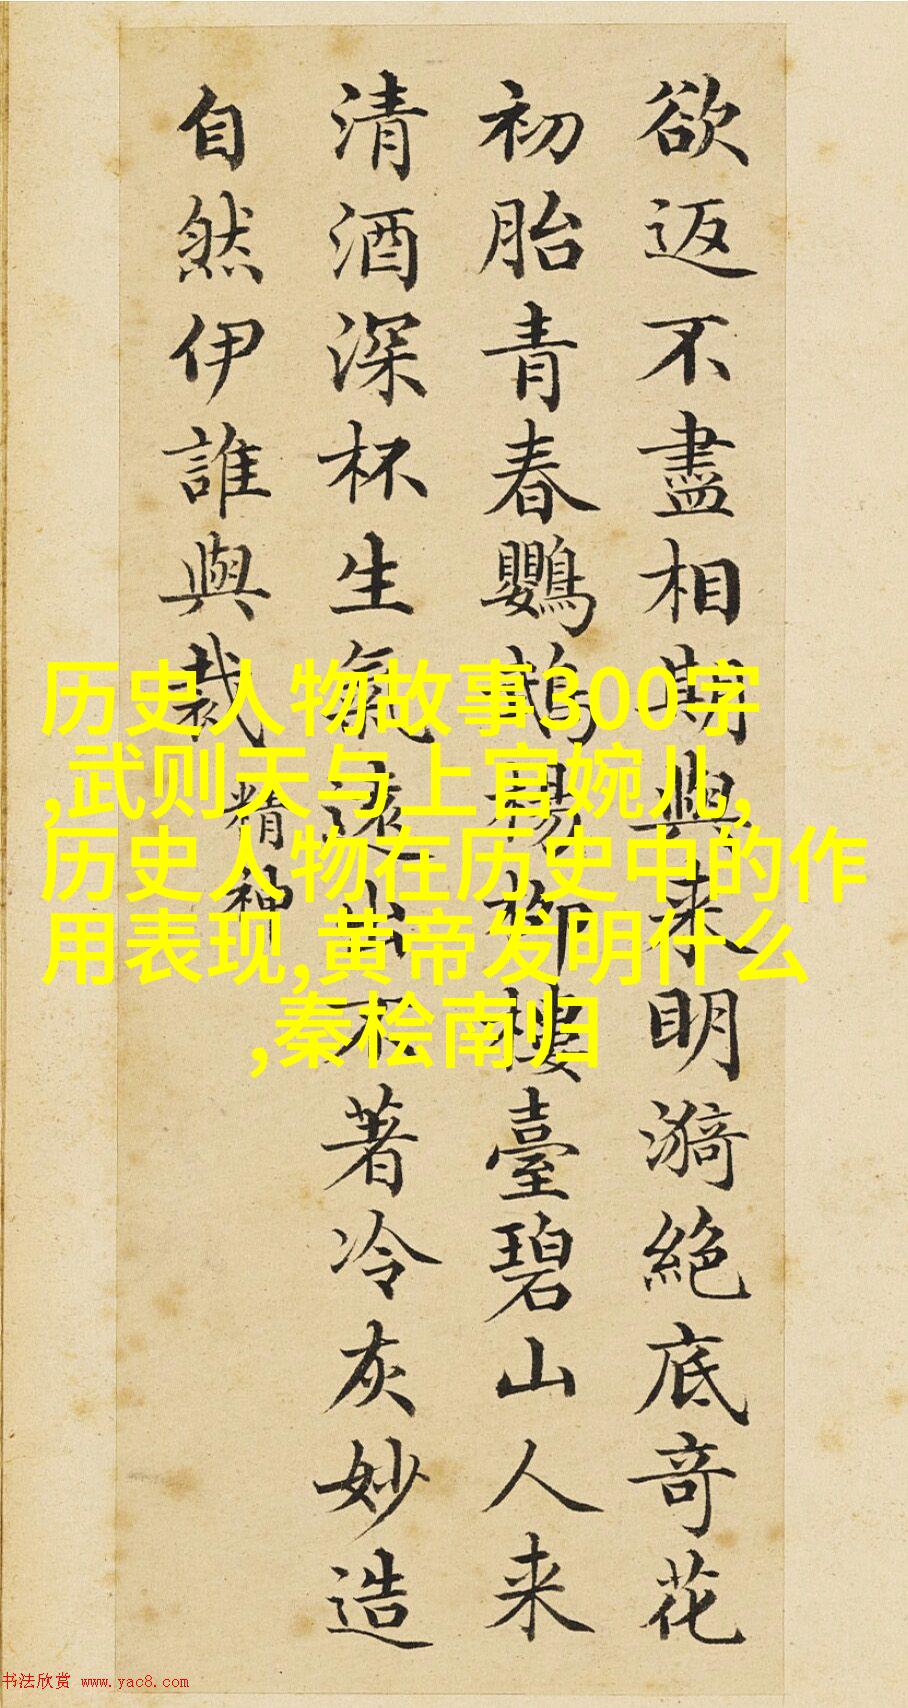 欲返不盡相期與来明漪絶底竒花
初胎青春鸚鵡楊柳樓臺碧山人来
清酒深杯生氣遠出不著冷灰妙造
自然伊誰與裁
精神
历史人物故事300字
,武则天与上官婉儿,
历史人物在历史中的作
用表现,黄帝发明什么
,秦桧南归
书法欣赏 www.yac8.com